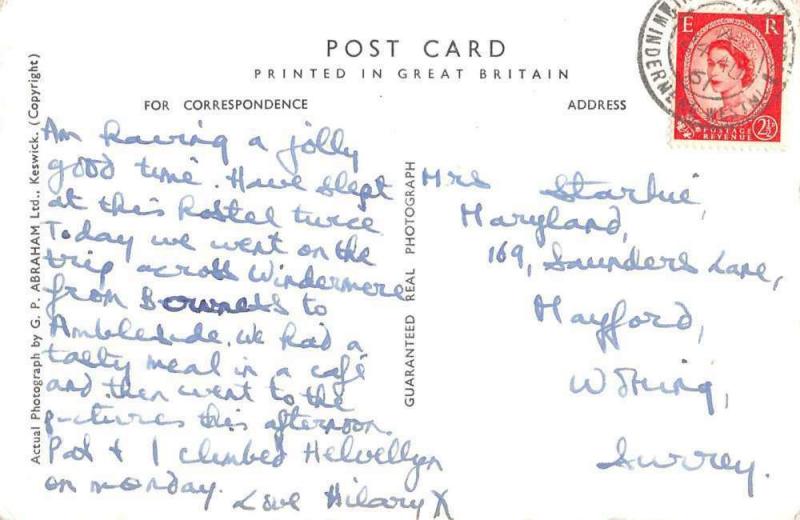 POST CARD
PRINTED IN GREAT BRITAIN
FOR CORRESPONDENCE
ADDRESS
Am having a jolly
good time. Have slept
at this hostel twice
Today we went on the
trip across Windermere
from Bowness to
Ambleside. We had a
tasty meal in a café
and then went to the
pictures this afternoon.
Pat & I climbed Helvellyn
on monday.
Love Hilary X
Actual Photograph by G. P. ABRAHAM Ltd., Keswick. (Copyright)
GUARANTEED REAL PHOTOGRAPH
Mrs
Maryland,
169, Saunders Lane,
Mayford,
Woking,
Surrey.
E R
POSTAGE
REVENUE
2½D
WINDERMERE